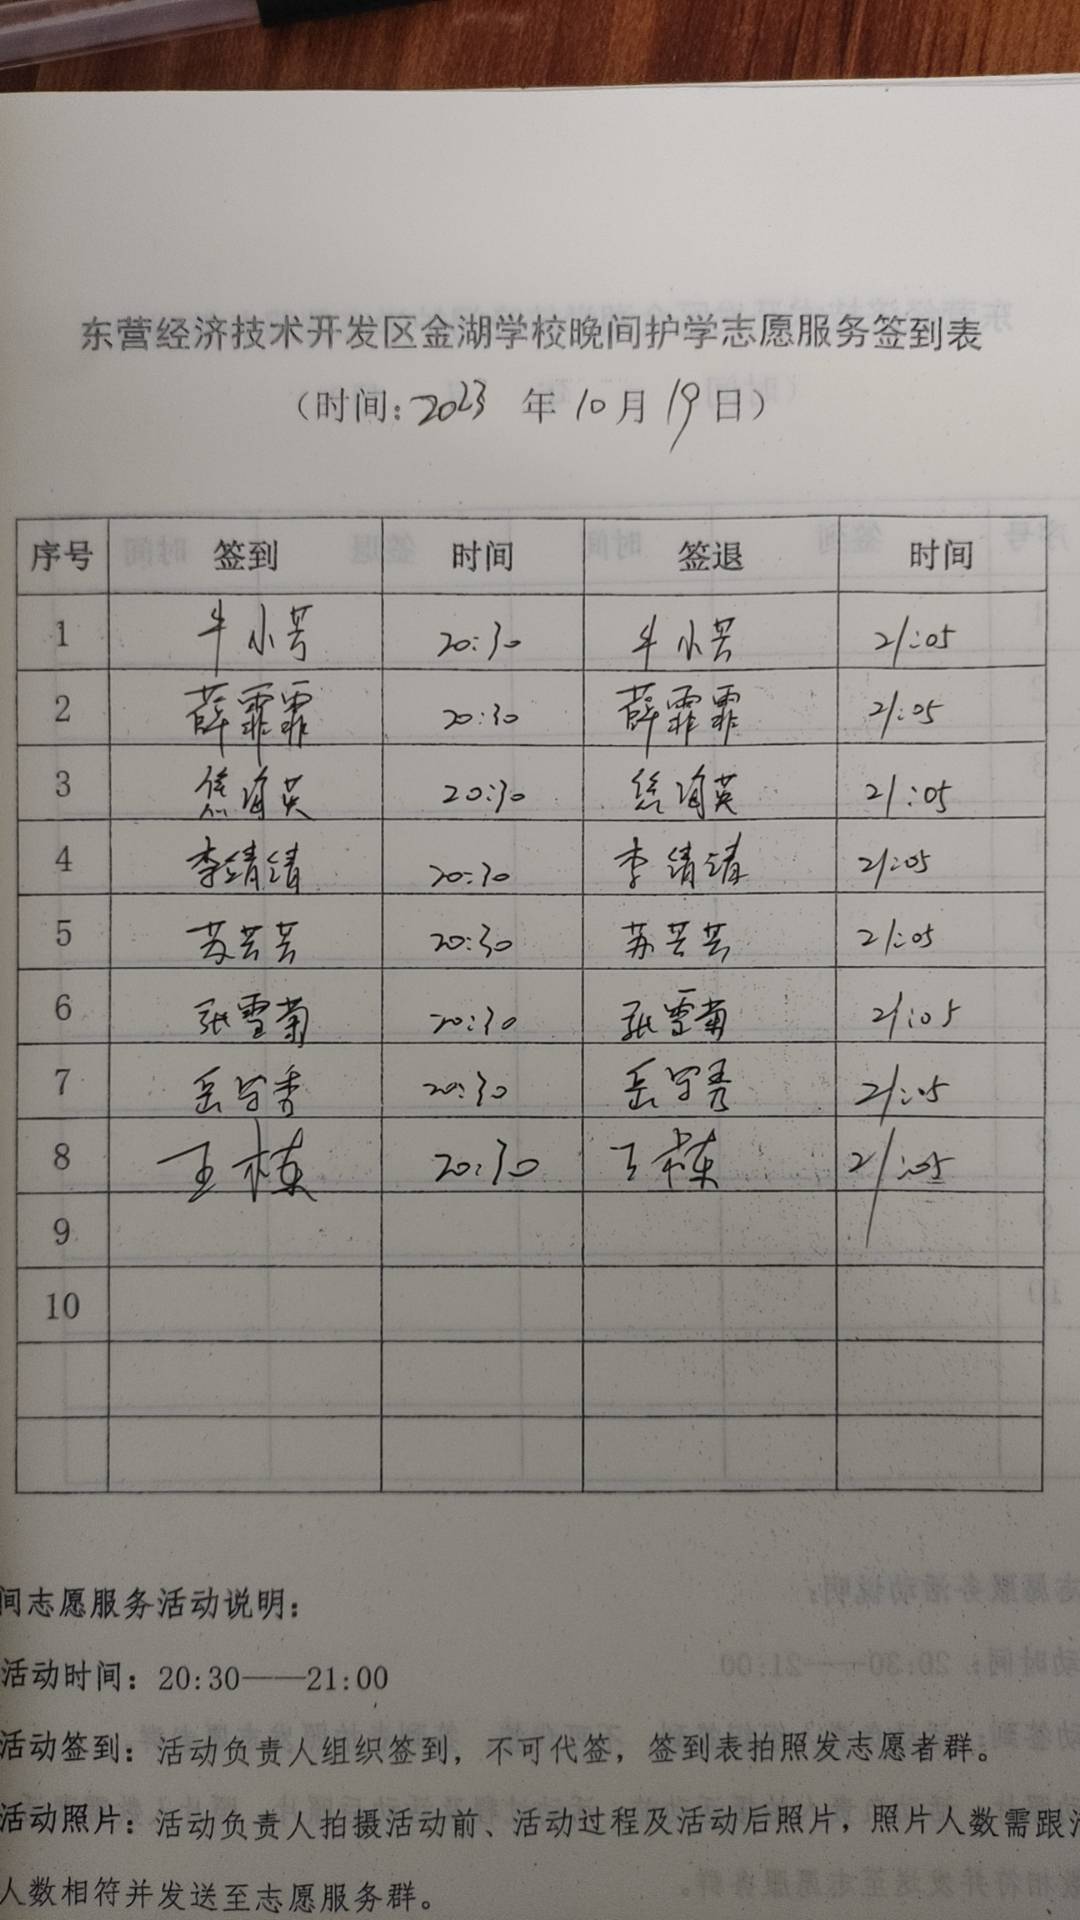 东营经济技术开发区金湖学校晚间护学志愿服务签到表
（时间：2023 年 10 月 19 日）
序号 签到 时间 签退 时间
1 牛小芳 20:30 牛小芳 21:05
2 薛霏霏 20:30 薛霏霏 21:05
3 焦海英 20:30 焦海英 21:05
4 李婧婧 20:30 李婧婧 21:05
5 苏芸芸 20:30 苏芸芸 21:05
6 张雪菊 20:30 张雪菊 21:05
7 岳守秀 20:30 岳守秀 21:05
8 王栋 20:30 王栋 21:05
9
10
间志愿服务活动说明：
活动时间：20:30——21:00
活动签到：活动负责人组织签到，不可代签，签到表拍照发志愿者群。
活动照片：活动负责人拍摄活动前、活动过程及活动后照片，照片人数需跟
人数相符并发送至志愿服务群。